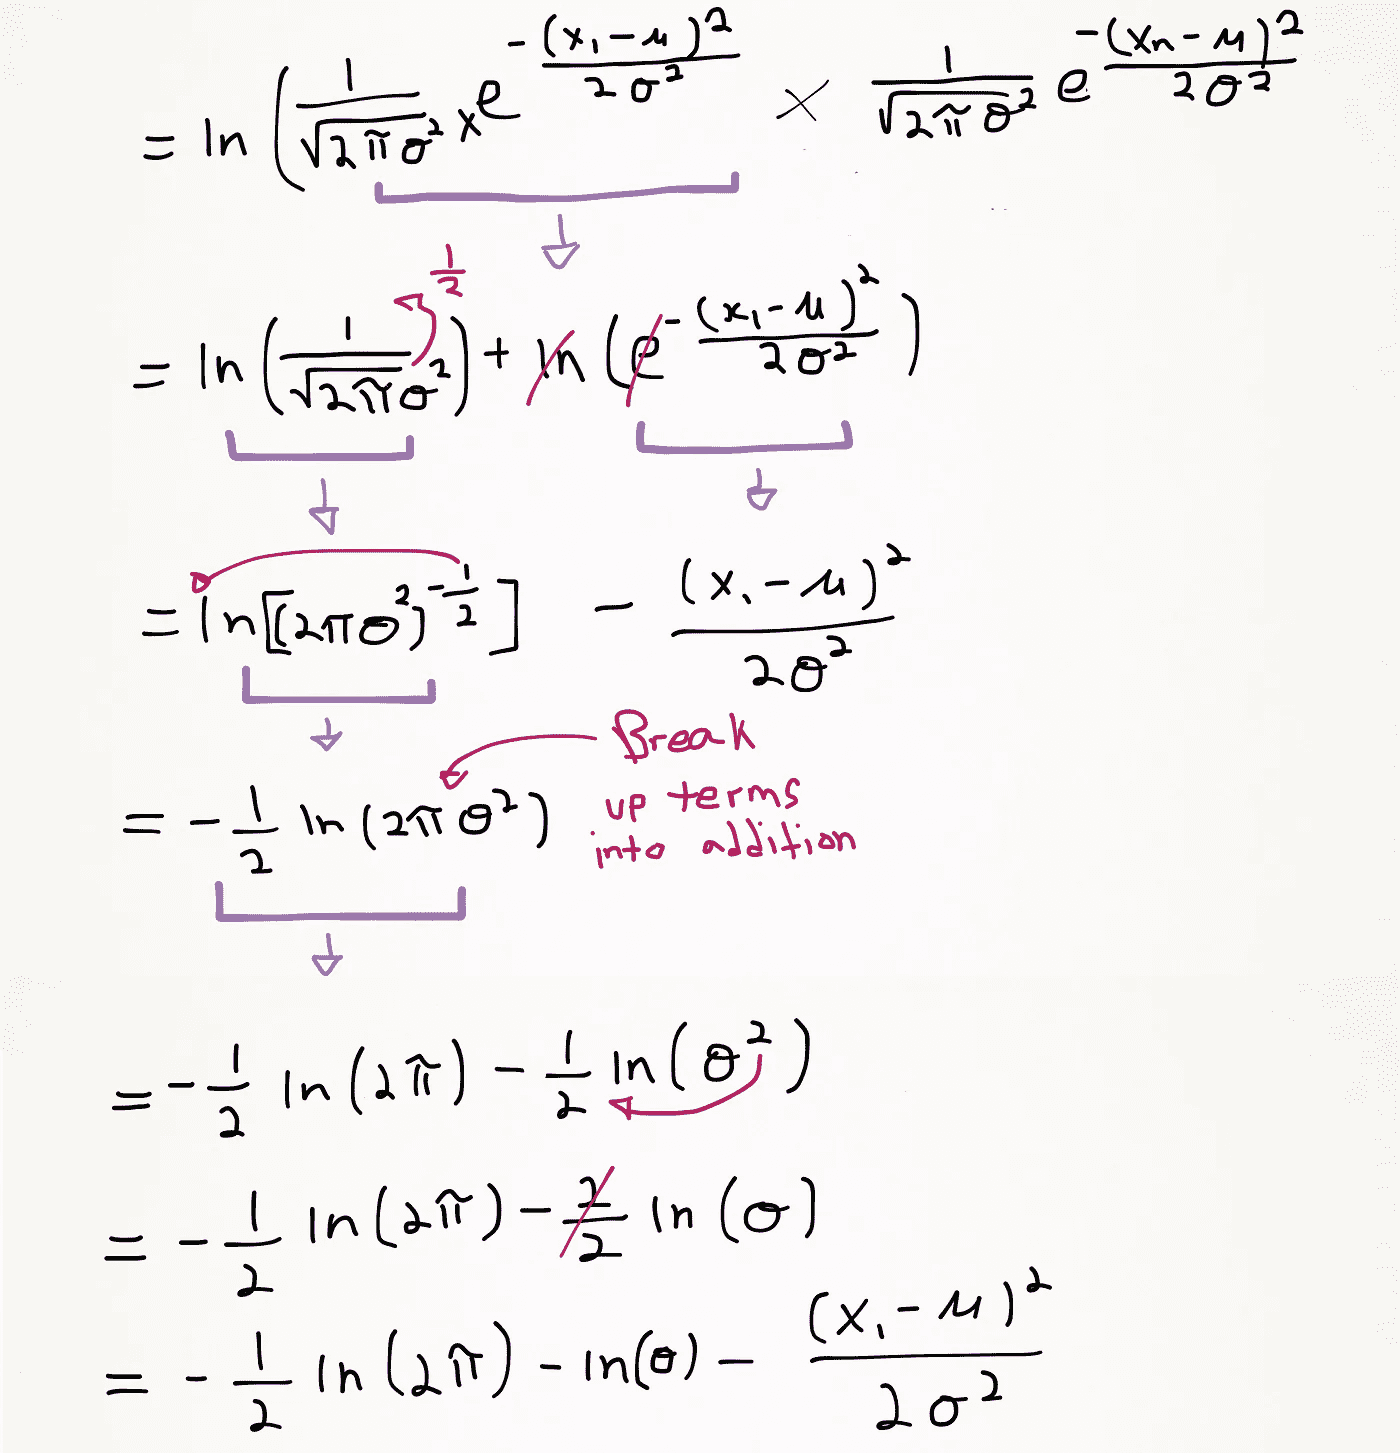 = ln ( 1/√(2πσ²) × e^(-(x₁-μ)²/2σ²) × 1/√(2πσ²) e^(-(xₙ-μ)²/2σ²)
1/2
= ln ( 1/√(2πσ²) ) + ln ( e^(-(x₁-μ)²/2σ²) )
= ln[(2πσ²)^(-1/2)] - (x₁-μ)²/2σ²
Break
= -1/2 ln(2πσ²) up terms
into addition
= -1/2 ln(2π) - 1/2 ln(σ²)
= -1/2 ln(2π) - 2/2 ln(σ)
= -1/2 ln(2π) - ln(σ) - (x₁-μ)²/2σ²